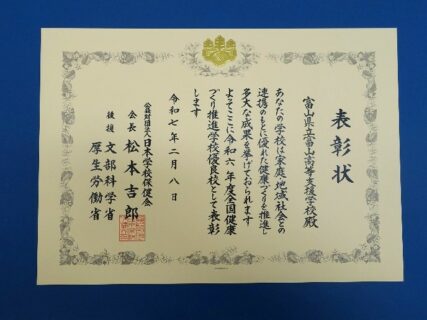 表彰状
富山県立富山高等支援学校殿
あなたの学校は家庭地域社会との
連携のもとに優れた健康づくりを推進し
多大な成果を挙げておられます
よってここに令和六年度全国健康
づくり推進学校優良校として表彰
します
令和七年二月八日
公益財団法人日本学校保健会
会長 松本吉郎
後援 文部科学省
厚生労働省